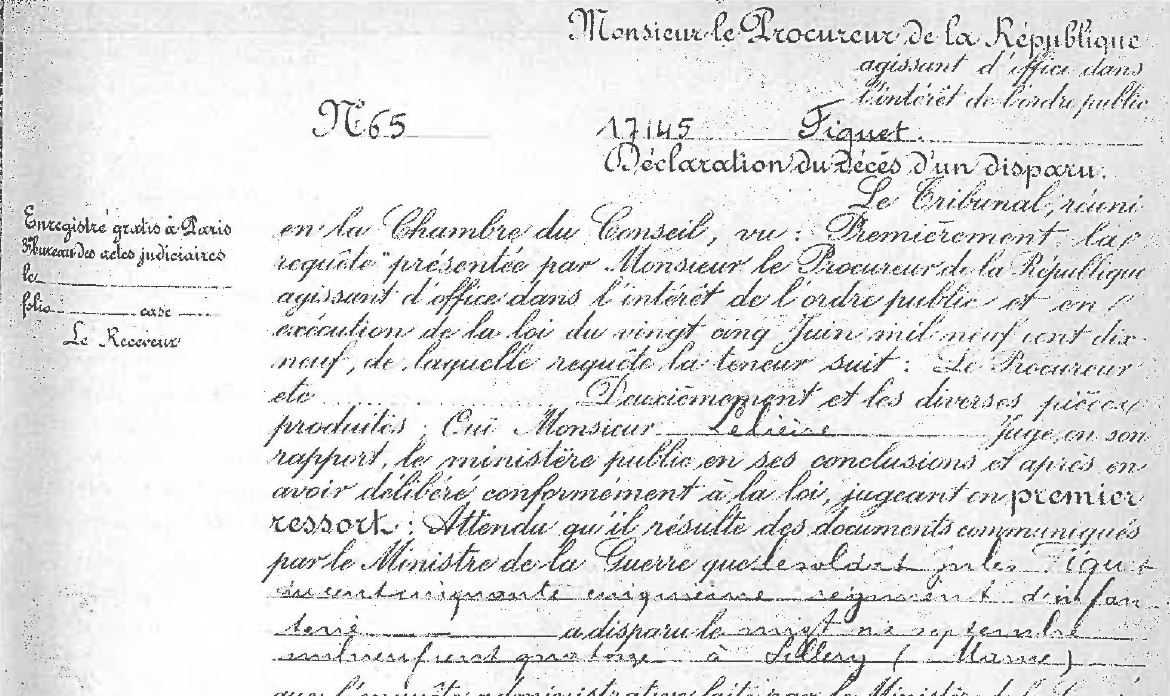 Monsieur le Procureur de la République
agissant d'office dans
l'intérêt de l'ordre public
N° 65
17145 Fiquet.
Déclaration du décès d'un disparu.
Le Tribunal, réuni
en la Chambre du Conseil, vu : Premièrement la
requête présentée par Monsieur le Procureur de la République
agissant d'office dans l'intérêt de l'ordre public et en
exécution de la loi du vingt cinq Juin mil neuf cent dix
neuf, de laquelle requête la teneur suit : Le Procureur
etc Deuxièmement et les diverses pièces
produites ; Oui Monsieur Lelièvre Juge, en son
rapport, le ministère public en ses conclusions et après en
avoir délibéré conformément à la loi, jugeant en premier
ressort : Attendu qu'il résulte des documents communiqués
par le Ministre de la Guerre que le soldat Jules Fiquet
cinquième régiment d'infan
terie a disparu le septembre
mil neuf cent quatorze à Sillery (Marne)
que l'enquête administrative faite par le Ministre de la
Enregistré gratis à Paris
3e bureau des actes judiciaires
le
folio case
Le Receveur